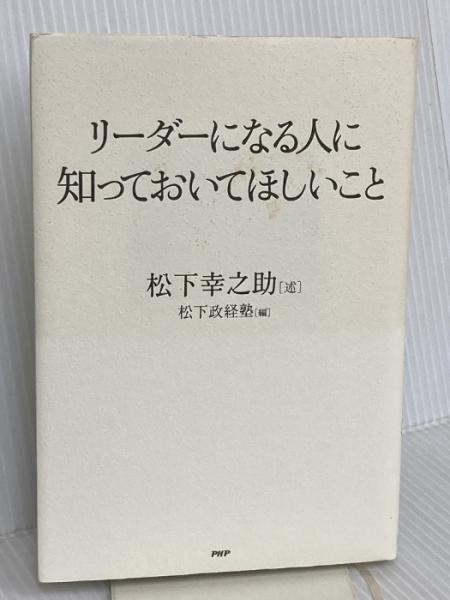 リーダーになる人に
知っておいてほしいこと
松下幸之助[述]
松下政経塾[編]
PHP